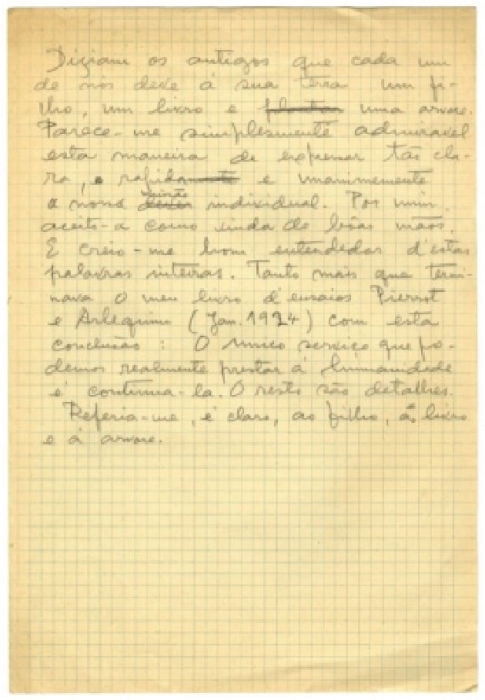 Diziam os antigos que cada um
de nós deve á sua terra um fi-
lho, um livro e plantar uma arvore.
Parece-me simplesmente admiravel
esta maneira de expremer tão cla-
ra, e rapida e unanimemente
a nossa missão individual. Por mim,
aceito-a como vinda de bôas mãos.
E creio-me bom entendedor d'estas
palavras inteiras. Tanto mais que termi-
nava o meu livro d'ensaios Pierrot
e Arlequim (Jan. 1924) com esta
conclusão: O unico serviço que po-
demos realmente prestar á humanidade
é continua-la. O resto são detalhes.
Referia-me, é claro, ao filho, ao livro
e á arvore.